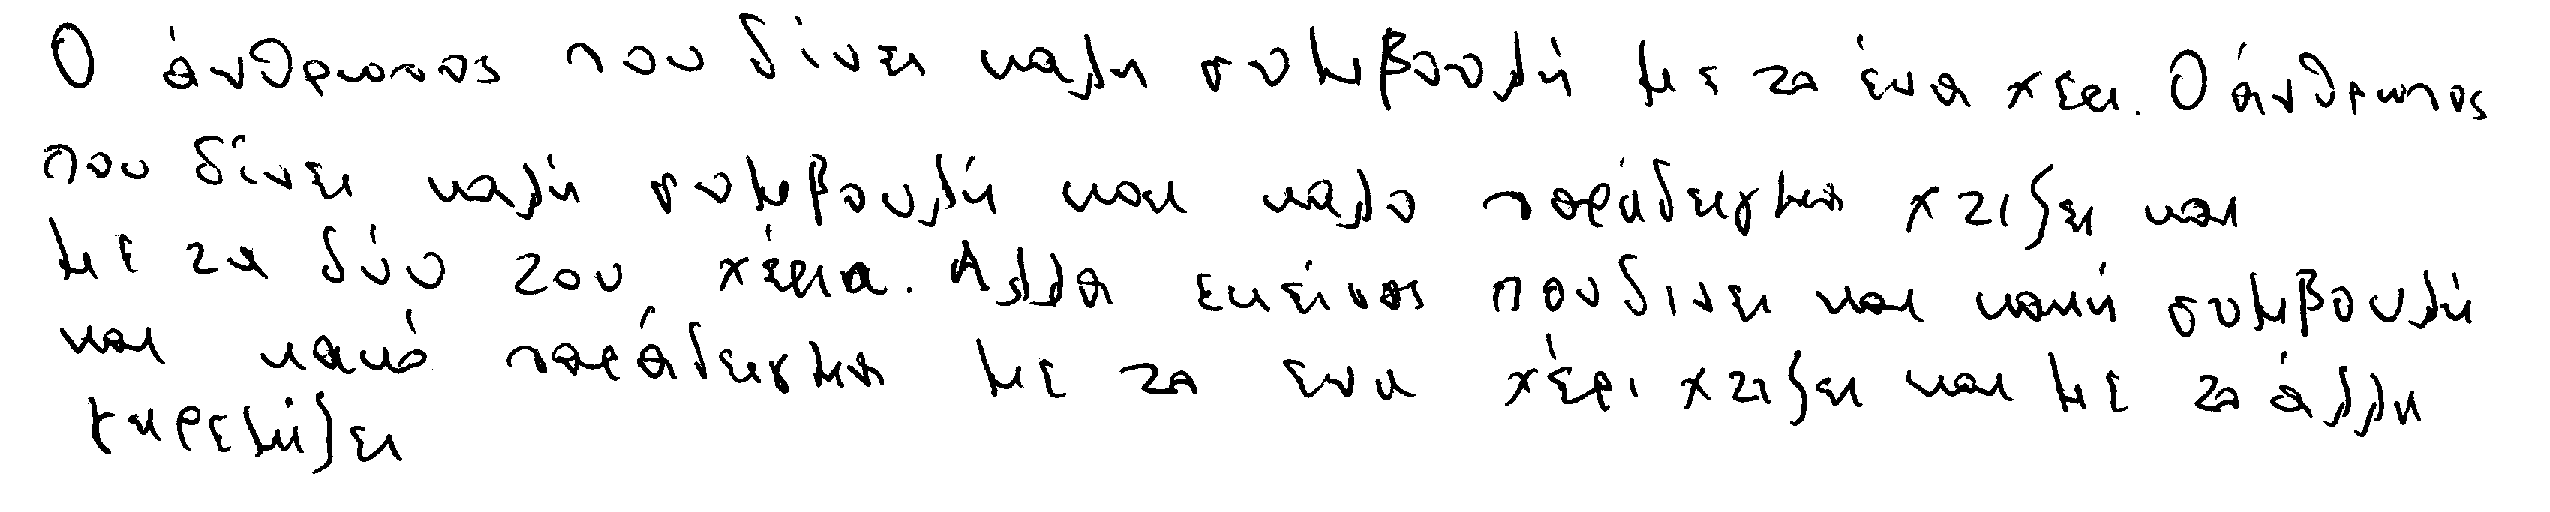 Ο άνθρωπος που δίνει καλη συμβουλή με τα ένα χέρι. Ο άνθρωπος
που δίνει καλή συμβουλή και καλο παράδειγμα χτιζει και
με τα δύο του χέρια. Αλλα εκείνος που δινει και κακή συμβουλή
και κακό παράδειγμα με τα ενα χέρι χτιζει και με τα άλλα
γκρεμίζει